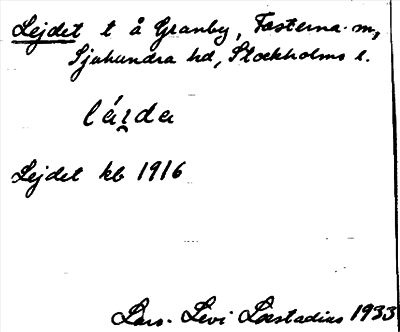 Lejdet t å Granby, Fasterna sn,
Sjuhundra hd, Stockholms l.
Lejdet kb 1916
Lars-Levi Læstadius 1933